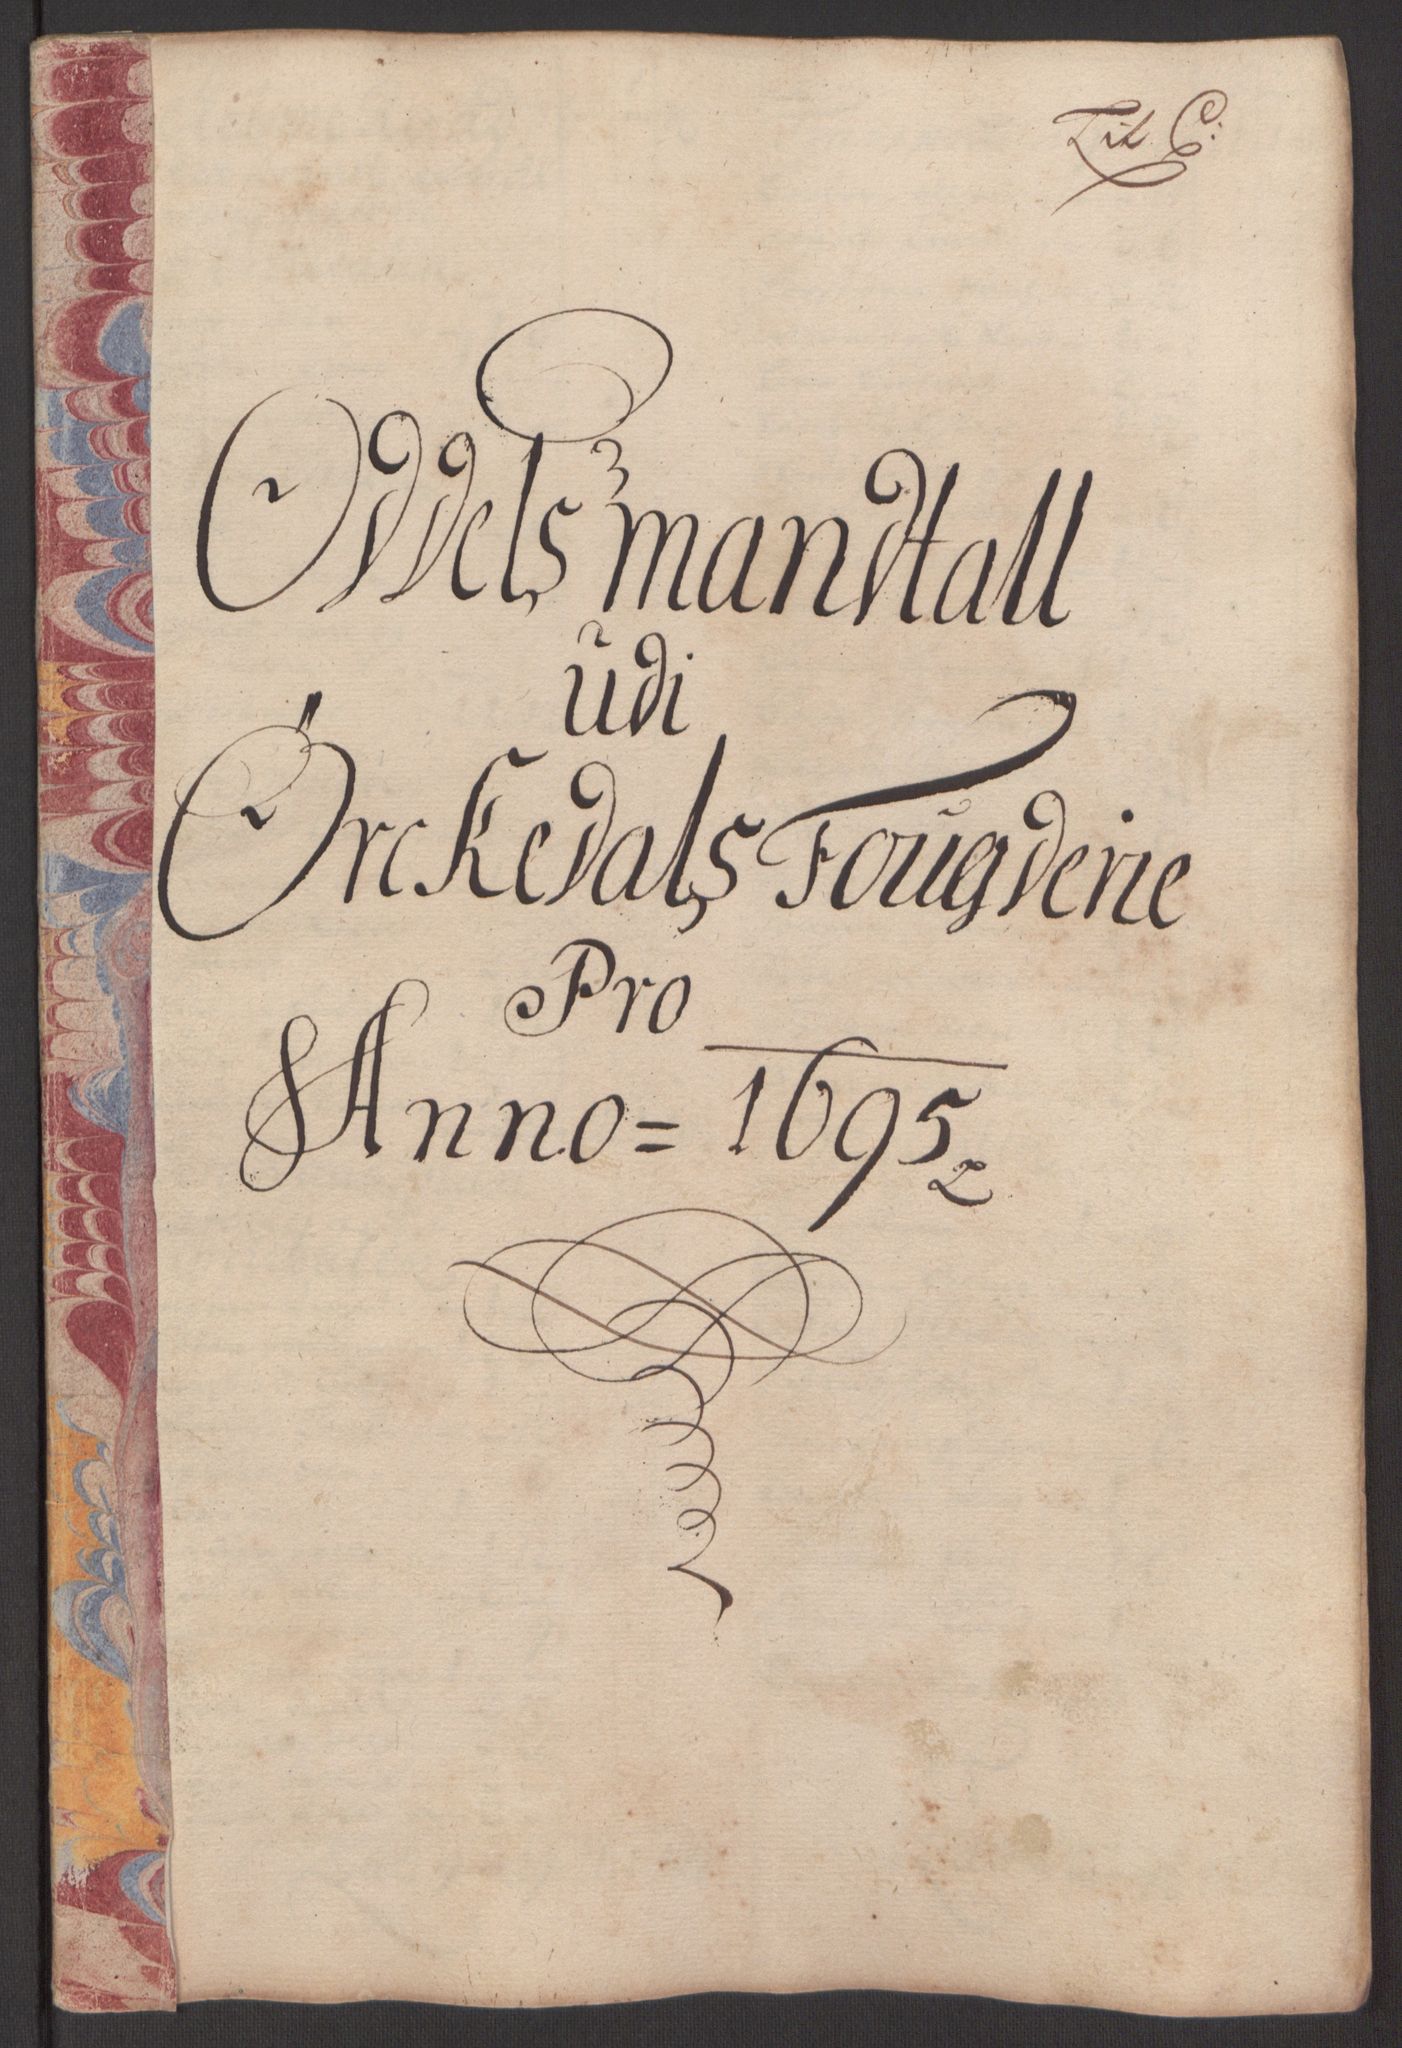 Lit C:
Oddels mandtall
udi
Örckedals Fougderie
Pro
Anno = 1695